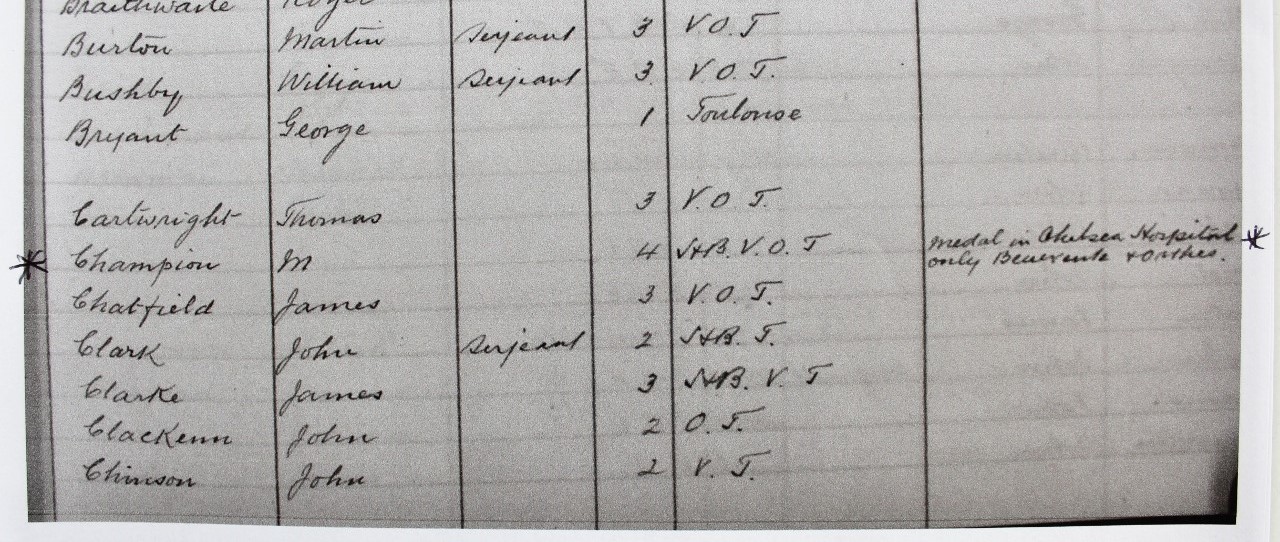 Braithwaite Roger
Burton Martin Serjeant 3 V.O.T
Bushby William Serjeant 3 V.O.T.
Bryant George 1 Toulouse
Cartwright Thomas 3 V.O.T.
* Champion M 4 S+B. V.O.T Medal in Chelsea Hospital *
only Benevente + Orthes.
Chatfield James 3 V.O.T.
Clark John Serjeant 2 S+B. T.
Clarke James 3 S+B. V. T
Clackenn John 2 O.T.
Chinson John 2 V.T.